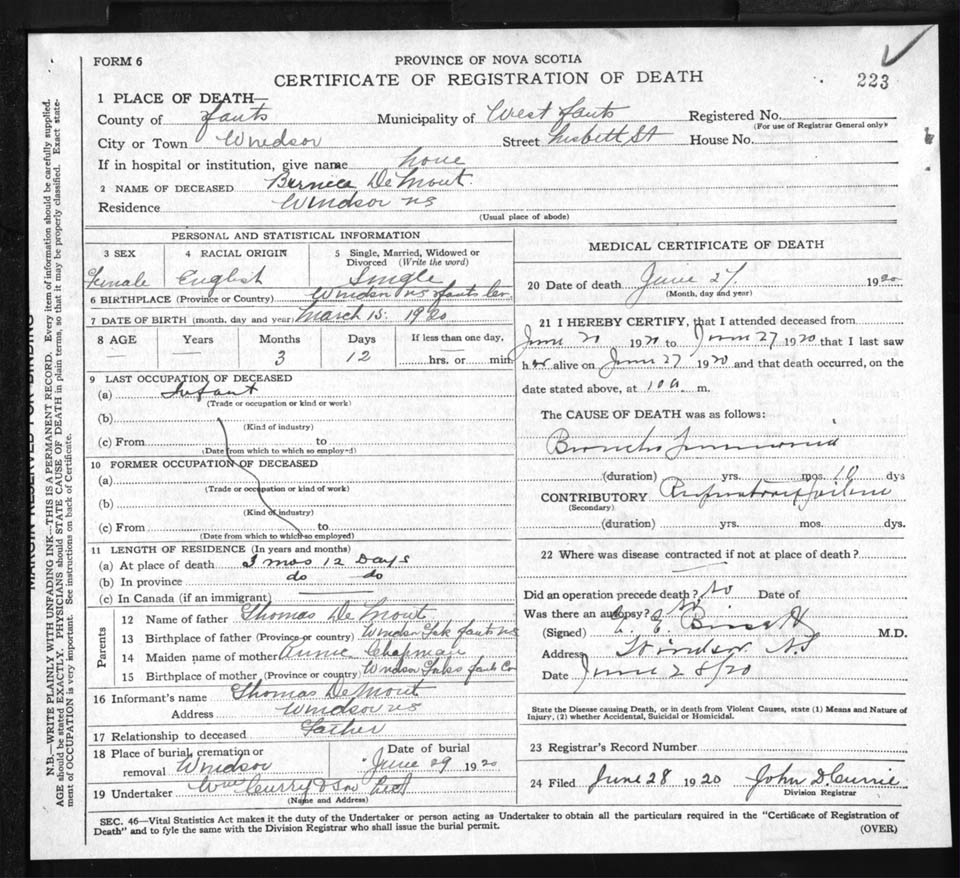 FORM 6
PROVINCE OF NOVA SCOTIA
CERTIFICATE OF REGISTRATION OF DEATH
223
1 PLACE OF DEATH—
County of Hants Municipality of West Hants Registered No.
(For use of Registrar General only)
City or Town Windsor Street Nesbitt St House No.
If in hospital or institution, give name home
2 NAME OF DECEASED Bernice De Mont.
Residence Windsor NS
(Usual place of abode)
PERSONAL AND STATISTICAL INFORMATION
3 SEX
Female
4 RACIAL ORIGIN
English
5 Single, Married, Widowed or Divorced (Write the word)
Single
6 BIRTHPLACE (Province or Country) Windsor NS Hants Co.
7 DATE OF BIRTH (month, day and year) March 15. 1920
8 AGE Years Months Days If less than one day,
3 12 hrs. or min.
9 LAST OCCUPATION OF DECEASED
(a) Infant
(Trade or occupation or kind of work)
(b)
(Kind of industry)
(c) From to
(Date from which to which so employed)
10 FORMER OCCUPATION OF DECEASED
(a)
(Trade or occupation or kind of work)
(b)
(Kind of industry)
(c) From to
(Date from which to which so employed)
11 LENGTH OF RESIDENCE (In years and months)
(a) At place of death 3 mos 12 Days
(b) In province do do
(c) In Canada (if an immigrant)
Parents
12 Name of father Thomas De Mont
13 Birthplace of father (Province or country) Windsor Hants NS
14 Maiden name of mother Annie Chapman
15 Birthplace of mother (Province or country) Windsor Hants Co
16 Informant's name Thomas De Mont
Address Windsor NS
17 Relationship to deceased Father
18 Place of burial, cremation or removal Windsor
Date of burial
June 29 1920
19 Undertaker Wm Curry & Son Ltd
(Name and Address)
MEDICAL CERTIFICATE OF DEATH
20 Date of death June 27. 1920
(Month, day and year)
21 I HEREBY CERTIFY, that I attended deceased from
June 20 1920 to June 27 1920 that I last saw
her alive on June 27 1920 and that death occurred, on the
date stated above, at 10 a m.
The CAUSE OF DEATH was as follows:
Broncho pneumonia
(duration) yrs. mos. 10 dys
CONTRIBUTORY Respiratory failure
(Secondary)
(duration) yrs. mos. dys.
22 Where was disease contracted if not at place of death?
Did an operation precede death? no Date of
Was there an autopsy? no
(Signed) M.D.
Address Windsor NS
Date June 28/20
State the Disease causing Death, or in death from Violent Causes, state (1) Means and Nature of
Injury, (2) whether Accidental, Suicidal or Homicidal.
23 Registrar's Record Number
24 Filed June 28 1920 John D. Currie
Division Registrar
SEC. 46—Vital Statistics Act makes it the duty of the Undertaker or person acting as Undertaker to obtain all the particulars required in the "Certificate of Registration of
Death" and to fyle the same with the Division Registrar who shall issue the burial permit.
(OVER)
MARGIN RESERVED FOR BINDING
N.B.—WRITE PLAINLY WITH UNFADING INK—THIS IS A PERMANENT RECORD. Every item of information should be carefully supplied.
AGE should be stated EXACTLY. PHYSICIANS should STATE CAUSE OF DEATH in plain terms, so that it may be properly classified. Exact state-
ment of OCCUPATION is very important. See instructions on back of Certificate.